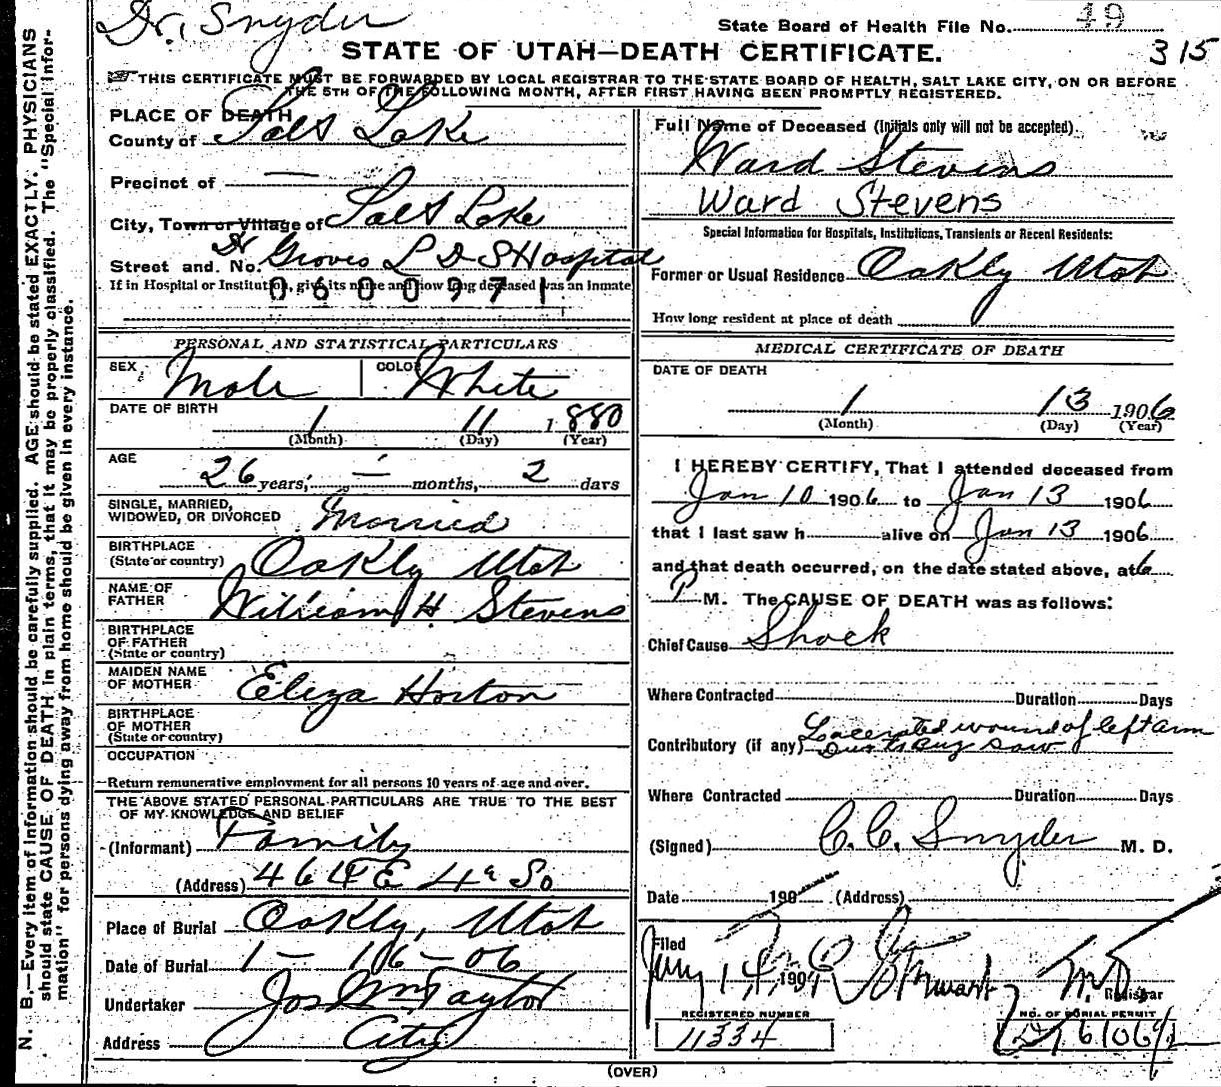 Dr. Snyder
State Board of Health File No. 49
STATE OF UTAH—DEATH CERTIFICATE.
315
THIS CERTIFICATE MUST BE FORWARDED BY LOCAL REGISTRAR TO THE STATE BOARD OF HEALTH, SALT LAKE CITY, ON OR BEFORE
THE 5TH OF THE FOLLOWING MONTH, AFTER FIRST HAVING BEEN PROMPTLY REGISTERED.
N. B.—Every item of information should be carefully supplied. AGE should be stated EXACTLY. PHYSICIANS
should state CAUSE OF DEATH in plain terms, that it may be properly classified. The "Special Infor-
mation" for persons dying away from home should be given in every instance.
PLACE OF DEATH
County of Salt Lake
Precinct of —
City, Town or Village of Salt Lake
Street and No. Dr Groves L D S Hospital
If in Hospital or Institution, give its name and how long deceased was an inmate
0600971
PERSONAL AND STATISTICAL PARTICULARS
SEX Male COLOR White
DATE OF BIRTH 1 11 1880
(Month) (Day) (Year)
AGE 26 years, — months, 2 days
SINGLE, MARRIED,
WIDOWED, OR DIVORCED Married
BIRTHPLACE
(State or country) Oakly Utah
NAME OF
FATHER William H. Stevens
BIRTHPLACE
OF FATHER
(State or country)
MAIDEN NAME
OF MOTHER Eliza Horton
BIRTHPLACE
OF MOTHER
(State or country)
OCCUPATION
Return remunerative employment for all persons 10 years of age and over.
THE ABOVE STATED PERSONAL PARTICULARS ARE TRUE TO THE BEST
OF MY KNOWLEDGE AND BELIEF
(Informant) Family
(Address) 464 E 4th So
Place of Burial Oakly, Utah
Date of Burial 1 — 16 — 06
Undertaker Jos Wm Taylor
Address City
Full Name of Deceased (Initials only will not be accepted).
Ward Stevens
Ward Stevens
Special Information for Hospitals, Institutions, Transients or Recent Residents:
Former or Usual Residence Oakly Utah
How long resident at place of death
MEDICAL CERTIFICATE OF DEATH
DATE OF DEATH
1 13 1906
(Month) (Day) (Year)
I HEREBY CERTIFY, That I attended deceased from
Jan 10 1906 to Jan 13 1906
that I last saw h alive on Jan 13 1906
and that death occurred, on the date stated above, at 6
P M. The CAUSE OF DEATH was as follows:
Chief Cause Shock
Where Contracted Duration Days
Lacerated wound of left arm
Contributory (if any) saw
Where Contracted Duration Days
(Signed) C. C. Snyder M. D.
Date 190 (Address)
Filed
Jany 14, 190 Stewart M.D.
Registrar
REGISTERED NUMBER
11334
NO. OF BURIAL PERMIT
6106
(OVER)